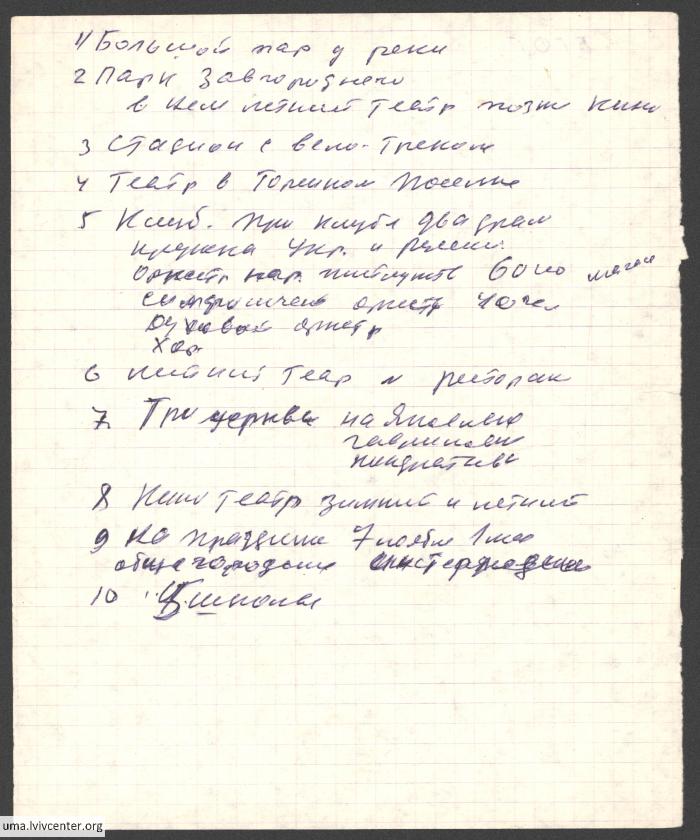 1) Большой пар у реки
2 Парк Завгороднего
в нем летний театр позже кино
3 Стадион с вело-треком
4 Театр в Поселке
5 Клуб. при клубе два драм
кружка Укр. и русский
Оркестр нар. 60 чел
оркестр 40 чел
Духовой оркестр
Хор
6 летний театр и ресторан
7. Три церкви на
8 Кино Театр зимний и летний
9 на праздник 7 ноября 1 мая
общегородские
10 школы
uma.lvivcenter.org